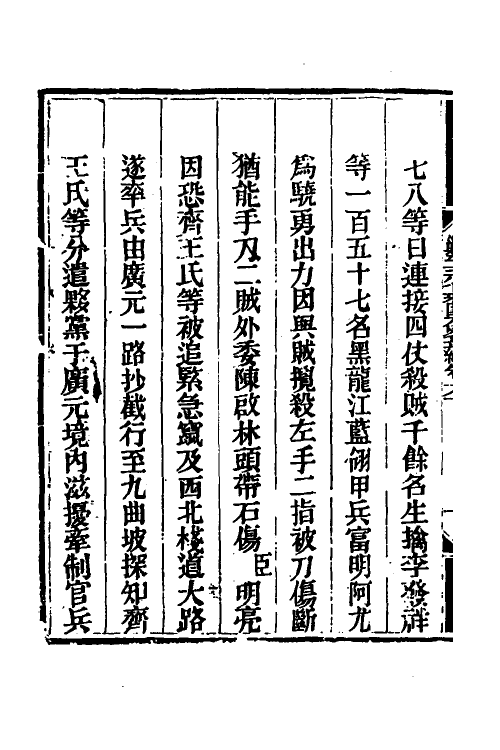 七八等日連接四仗殺賊千餘名生擒李發祥
等一百五十七名黑龍江藍翎甲兵富明阿尤
爲驍勇出力因與賊攪殺左手二指被刀傷斷
猶能手刃二賊外委陳啟林頭帶石傷臣明亮
因恐齊王氏等被追緊急竄及西北棧道大路
遂率兵由廣元一路抄截行至九曲坡探知齊
王氏等分遣夥黨于廣元境內滋擾牽制官兵